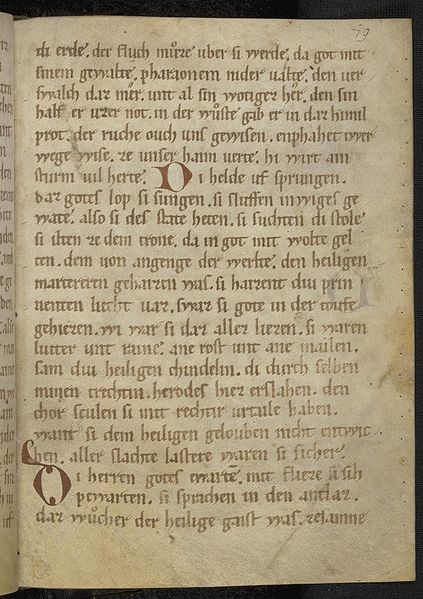 79
di erde. der fluch můze uber si werde. da got mit
sinem gewalte. pharionem nider valte. den ver
swalch daz mer. unt al sin wotiger her. den sin
half er uzer not. in der wůste gab er in daz himil
prot. der ruche ouch uns gewisen. enphahet wer
wege wise. ze unser haim verte. hi wirt am
sturm vil herte. Di helde uf sprungen.
daz gotes lop si sungen. si sluffen in wiges ge
wate. also si des state heten. si suchten di stole
si ilten ze dem trone. da in got mit wolte gel
ten. dem von angenge der werlte. den heiligen
martereren gehaizen was. si harrent diu prin
nenten liecht vaz. swaz si gote in der toufe
gehiezen. wi war si daz aller liezen. si waren
lutter unt raine. ane rost unt ane mailen.
sam diu heiligen chindelin. di durch selben
minen trechtin. herodes hiez erslahen. den
chor sculen si mit rechtir urtaile haben.
want si dem heiligen gelouben nicht entwic
hen. aller slachte lastere waren si sicher.
Di herren gotes ewarte. mit flieze si sih
pewarten. si sprachen in den antlaz.
daz wůcher der heilige gaist was. zesamne